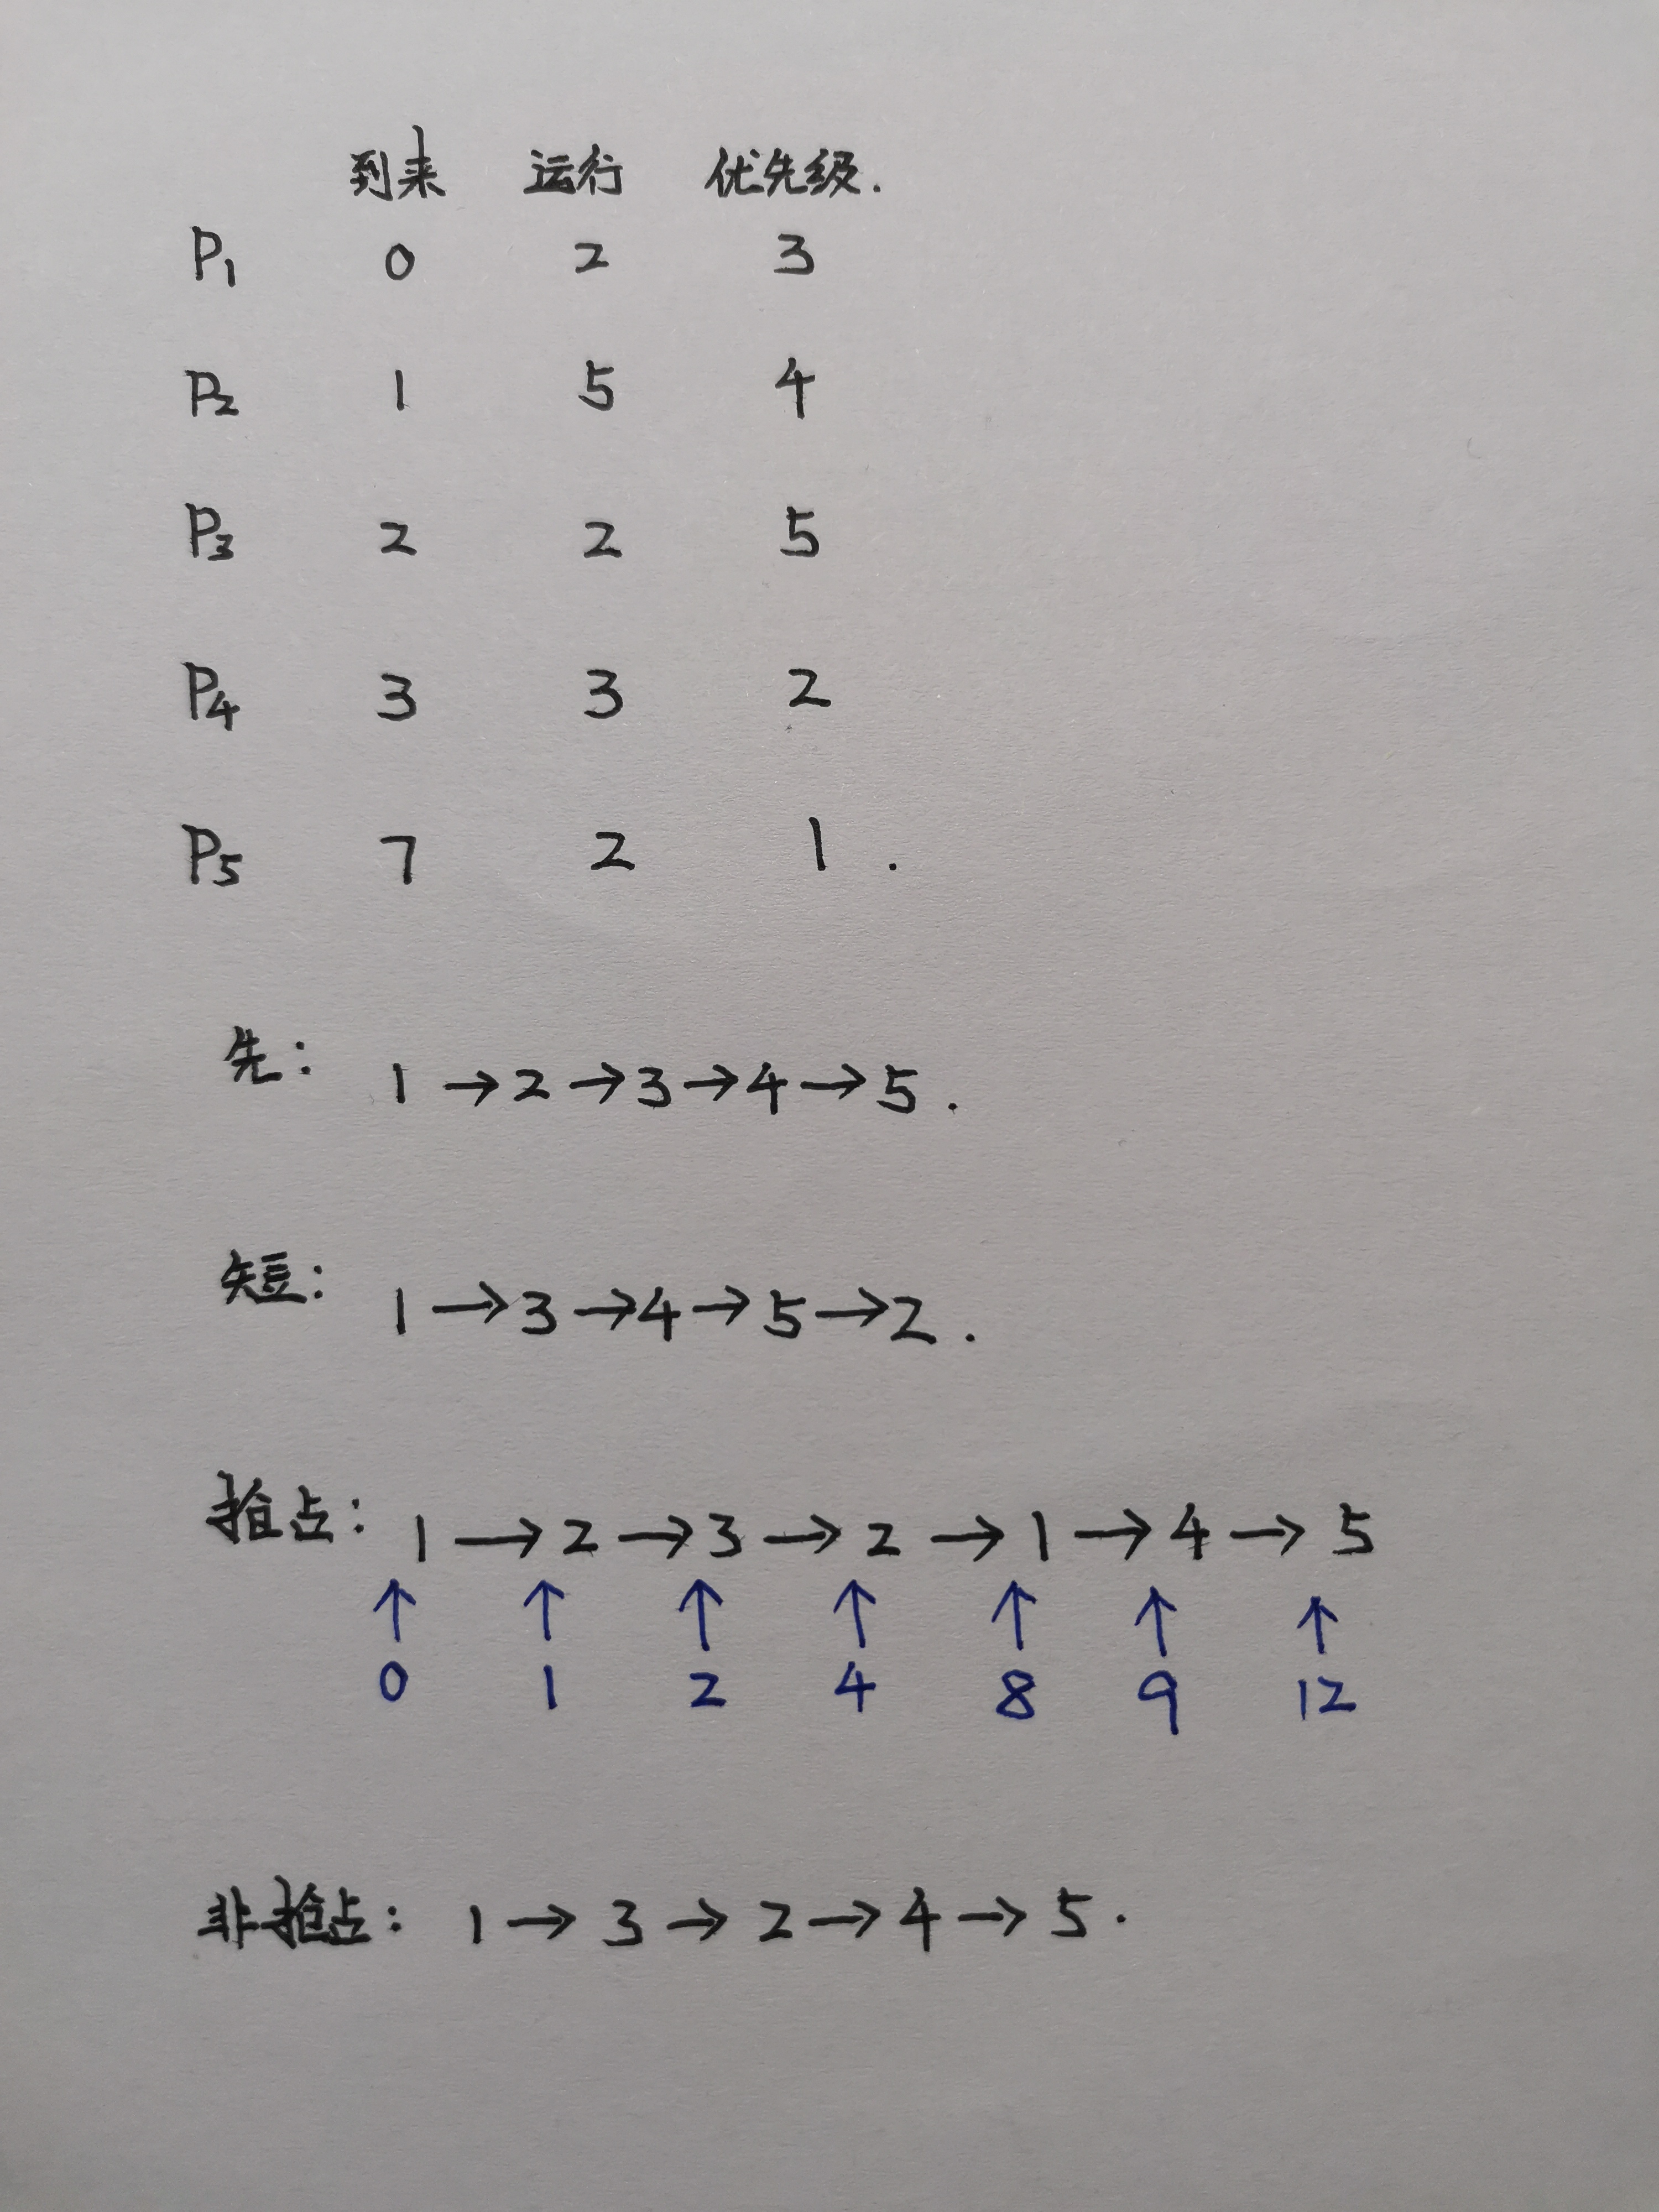 到来 运行 优先级.
P1 0 2 3
P2 1 5 4
P3 2 2 5
P4 3 3 2
P5 7 2 1 .
先: 1 → 2 → 3 → 4 → 5 .
短: 1 → 3 → 4 → 5 → 2 .
抢占: 1 → 2 → 3 → 2 → 1 → 4 → 5
↑ ↑ ↑ ↑ ↑ ↑ ↑
0 1 2 4 8 9 12
非抢占: 1 → 3 → 2 → 4 → 5 .